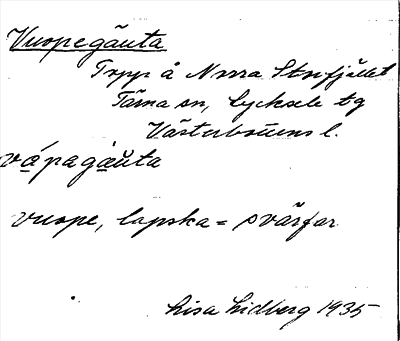 Vuopegåuta
Topp å Norra Storfjället
Tärna sn, Lycksele tg
Västerbottens l.
vápagàŭta
vuope, lapska = svärfar
Lisa Lidberg 1935